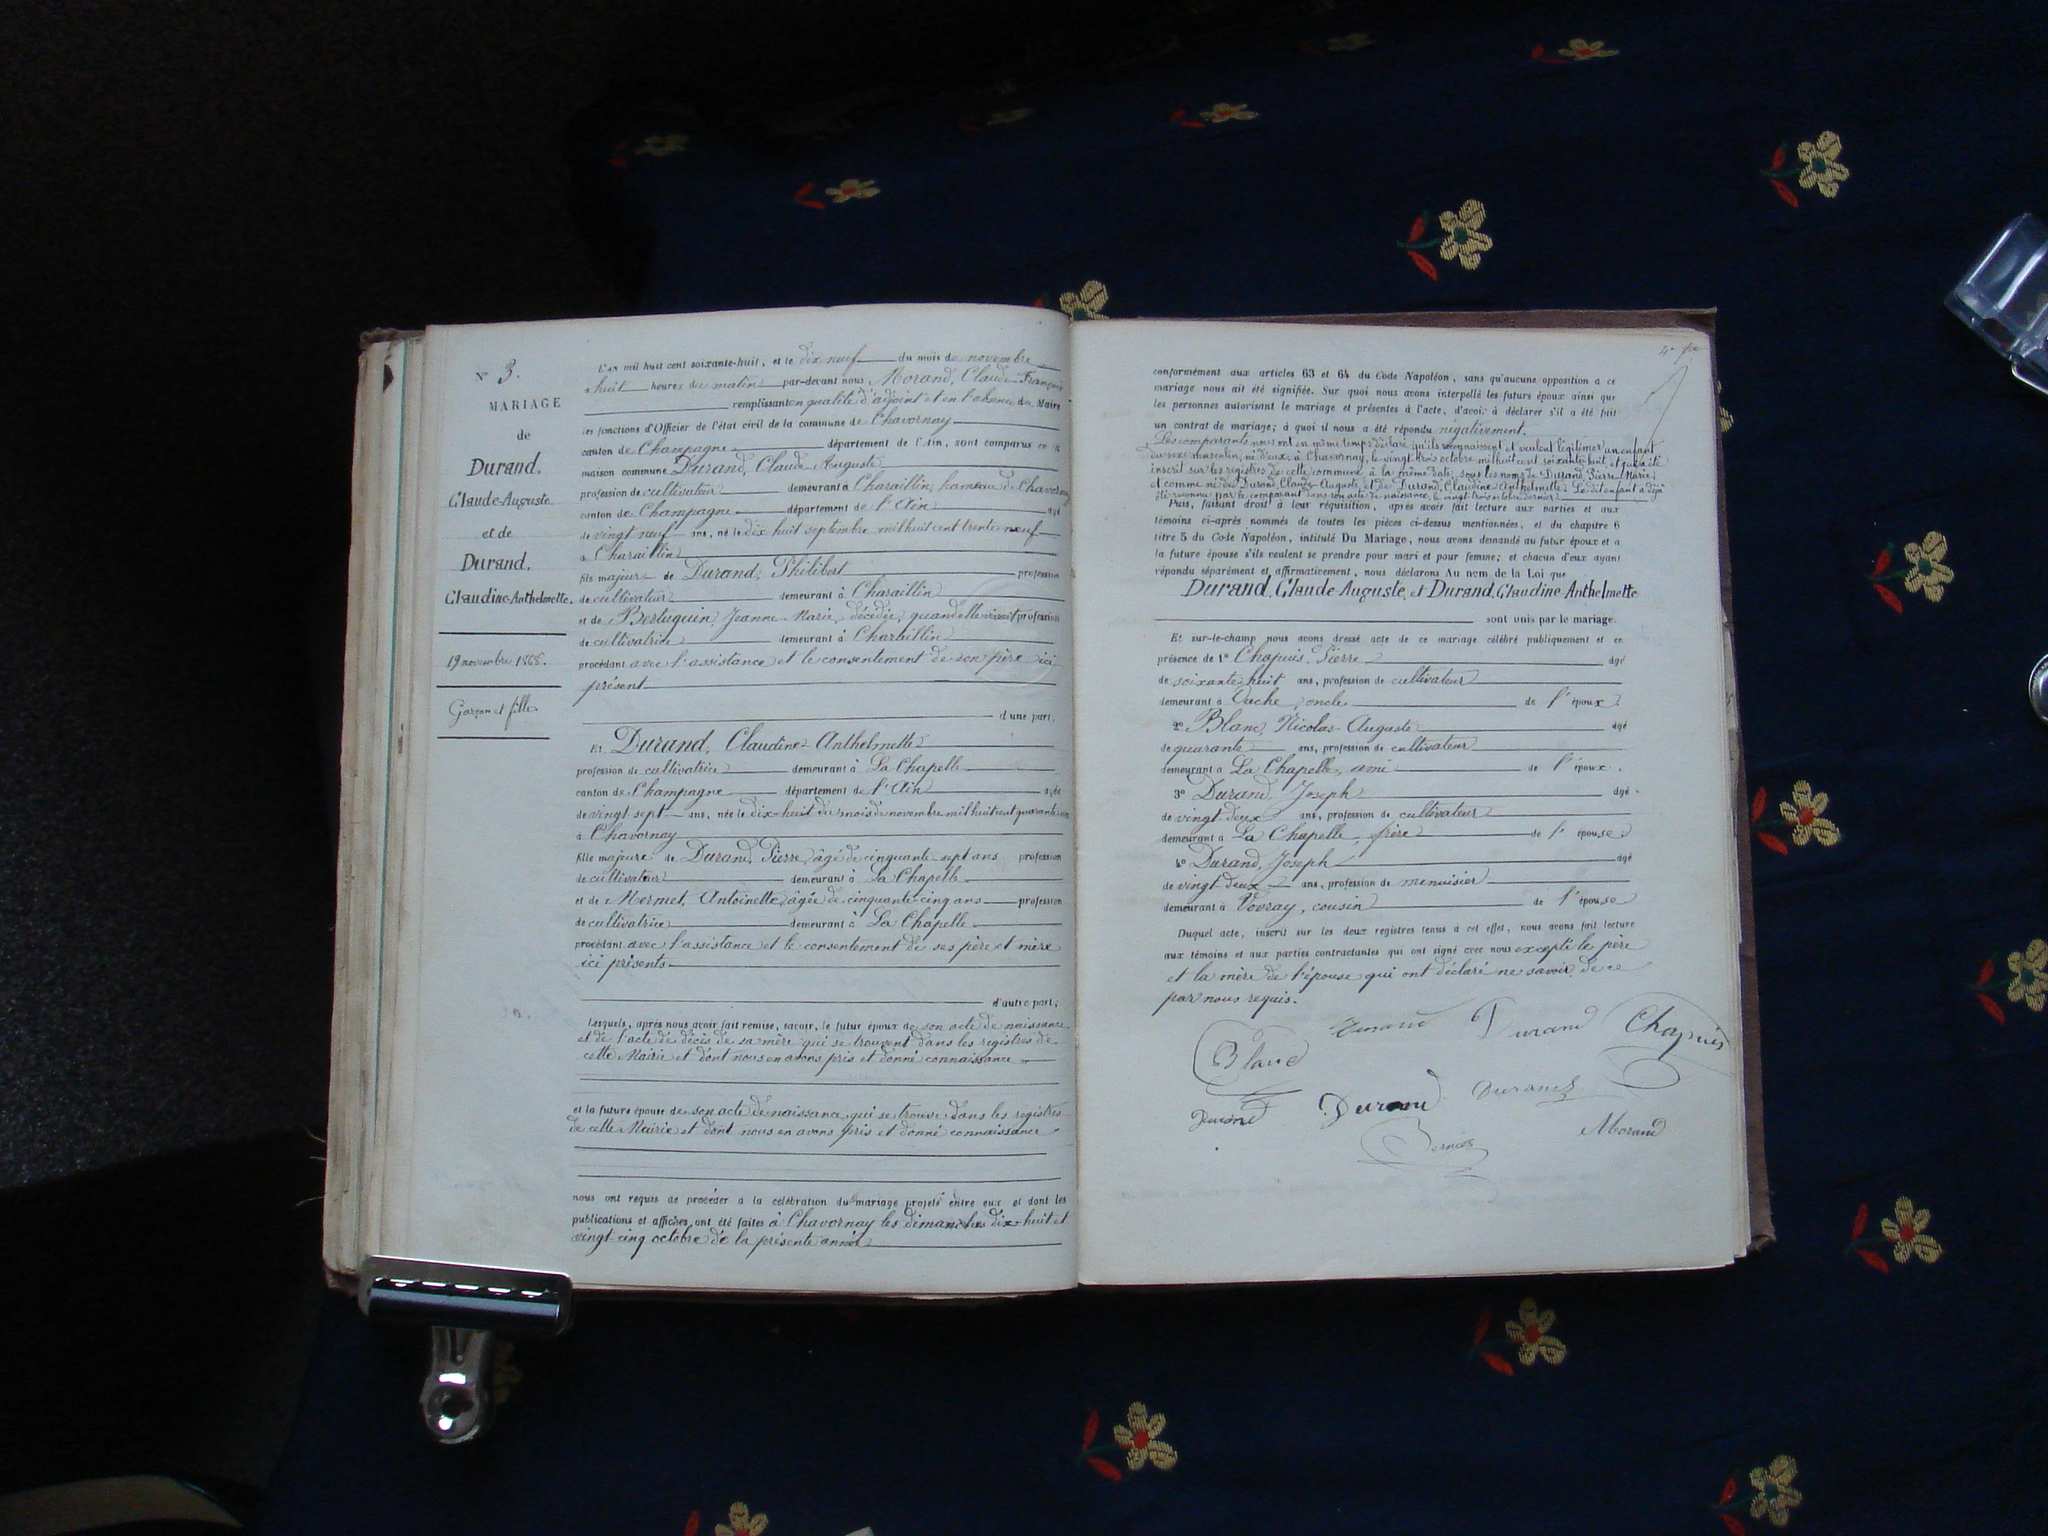 N° 3.
MARIAGE
de
Durand,
Claude-Auguste
et de
Durand,
Claudine-Anthelmette.
19 novembre 1868.
Garçon et fille
L'an mil huit cent soixante-huit, et le dix neuf du mois de novembre
à huit heures du matin par-devant nous Morand, Claude François
remplissant en qualité d'adjoint et en l'absence du Maire
les fonctions d'Officier de l'état civil de la commune de Chavornay
canton de Champagne département de l'Ain, sont comparus en la
maison commune Durand, Claude Auguste
profession de cultivateur demeurant à Charaillin, hameau de Chavornay
canton de Champagne département de l'Ain âgé
de vingt neuf ans, né le dix huit septembre mil huit cent trente neuf
à Charaillin
fils majeur de Durand, Philibert profession
de cultivateur demeurant à Charaillin
et de Berluquin Jeanne-Marie, décédée, quand elle vivait profession
de cultivatrice demeurant à Charaillin
procédant avec l'assistance et le consentement de son père ici
présent
d'une part,
Et Durand, Claudine-Anthelmette
profession de cultivatrice demeurant à La Chapelle
canton de Champagne département de l'Ain âgée
de vingt sept ans, née le dix-huit du mois de novembre mil huit cent quarante
à Chavornay
fille majeure de Durand, Pierre, âgé de cinquante sept ans profession
de cultivateur demeurant à La Chapelle
et de Mermet, Antoinette, âgée de cinquante-cinq ans profession
de cultivatrice demeurant à La Chapelle
procédant avec l'assistance et le consentement de ses père et mère
ici présents
d'autre part,
Lesquels, après nous avoir fait remise, savoir, le futur époux de son acte de naissance
et de l'acte de décès de sa mère qui se trouvent dans les registres de
cette Mairie et dont nous en avons pris et donné connaissance
et la future épouse de son acte de naissance qui se trouve dans les registres
de cette Mairie et dont nous en avons pris et donné connaissance
nous ont requis de procéder à la célébration du mariage projeté entre eux et dont les
publications et affiches ont été faites à Chavornay les dimanches dix-huit et
vingt-cinq octobre de la présente année
conformément aux articles 63 et 64 du Code Napoléon, sans qu'aucune opposition à ce
mariage nous ait été signifiée. Sur quoi nous avons interpellé les futurs époux ainsi que
les personnes autorisant le mariage et présentes à l'acte, d'avoir à déclarer s'il a été fait
un contrat de mariage; à quoi il nous a été répondu négativement.
Les comparants nous ont en même temps déclaré qu'ils reconnaissent et veulent légitimer un enfant
du sexe masculin, né d'eux, à Chavornay, le vingt trois octobre mil huit cent soixante-huit et qui a été
inscrit sur les registres de cette commune à la même date, sous les noms de Durand, Pierre-Marie,
et comme né de Durand, Claude-Auguste, et de Durand, Claudine-Anthelmette. Le dit enfant a déjà
été reconnu par le comparant dans son acte de naissance, le vingt trois octobre dernier
Puis, faisant droit à leur réquisition, après avoir fait lecture aux parties et aux
témoins ci-après nommés de toutes les pièces ci-dessus mentionnées, et du chapitre 6
titre 5 du Code Napoléon, intitulé Du Mariage, nous avons demandé au futur époux et à
la future épouse s'ils veulent se prendre pour mari et pour femme; et chacun d'eux ayant
répondu séparément et affirmativement, nous déclarons Au nom de la Loi que
Durand, Claude-Auguste, et Durand, Claudine-Anthelmette
sont unis par le mariage.
Et sur-le-champ nous avons dressé acte de ce mariage célébré publiquement et en
présence de 1° Chapuis, Pierre âgé
de soixante huit ans, profession de cultivateur
demeurant à Ouche, oncle de l'époux
2° Blanc, Nicolas-Auguste âgé
de quarante ans, profession de cultivateur
demeurant à La Chapelle, ami de l'époux.
3° Durand, Joseph âgé
de vingt-deux ans, profession de cultivateur
demeurant à La Chapelle, frère de l'épouse
4° Durand, Joseph âgé
de vingt-deux ans, profession de menuisier
demeurant à Vovray, cousin de l'épouse
Duquel acte, inscrit sur les deux registres tenus à cet effet, nous avons fait lecture
aux témoins et aux parties contractantes qui ont signé avec nous excepté le père
et la mère de l'épouse qui ont déclaré ne savoir, de ce
par nous requis.
Durand Durand Chapuis
Blanc
Durand Durand Durand
Morand